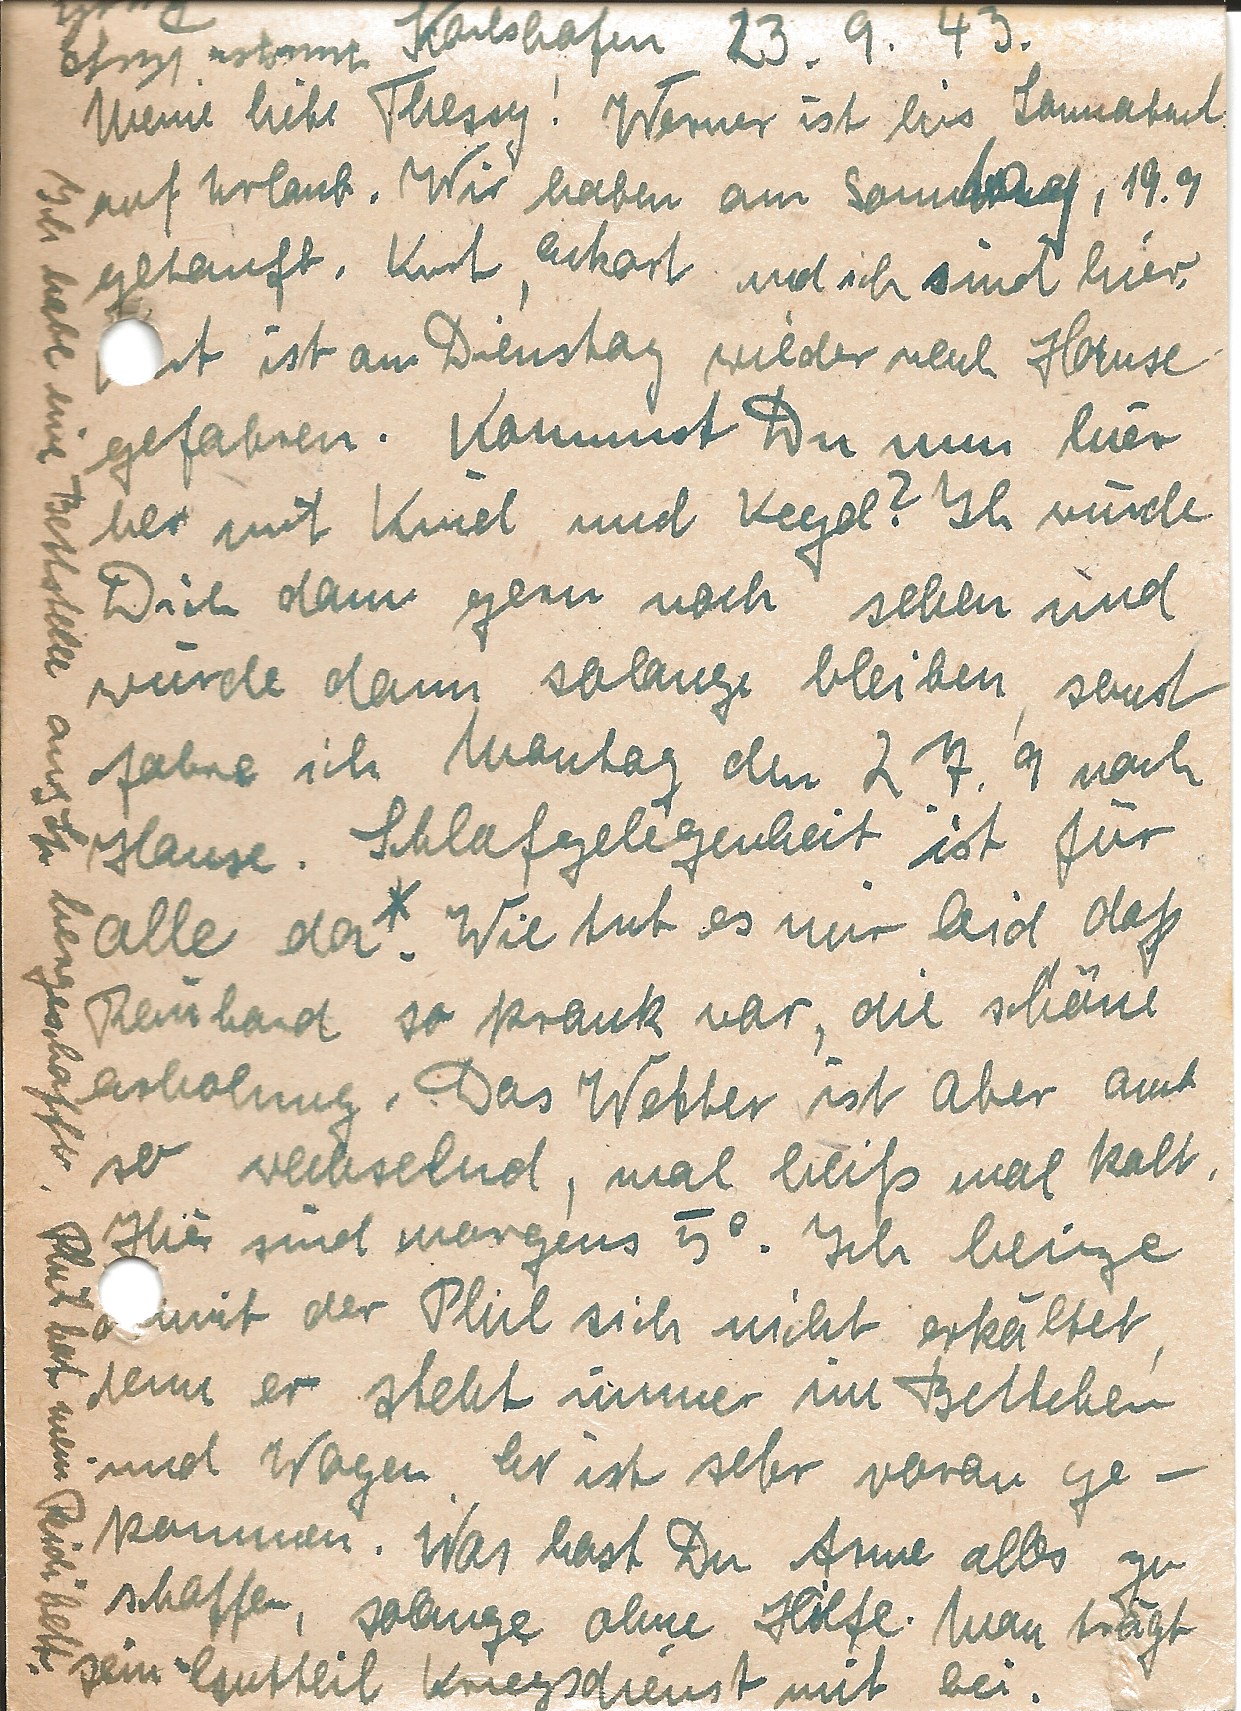 Karlshafen 23. 9. 43.
Meine liebe Thessy! Werner ist bis Sonnabend
auf Urlaub. Wir haben am Sonntag, 19.9
getauft. Kurt, Eckart und ich sind hier.
ist am Dienstag wieder nach Hause
gefahren. Kommst Du nun hier
her mit Kind und Kegel? Ich würde
Dich dann gern noch sehen und
würde dann solange bleiben, sonst
fahre ich Montag den 27. 9 nach
Hause. Schlafgelegenheit ist für
alle da*. Wie tut es mir leid daß
Reinhard so krank war, die schöne
erholung. Das Wetter ist aber auch
so wechselnd, mal heiß mal kalt.
Hier sind morgens 5°. Ich heize
damit der Phil sich nicht erkältet,
denn er steht immer im Bettchen
und Wagen. Er ist sehr voran ge-
kommen. Was hast Du Arme alles zu
schaffen, solange ohne Hilfe. Man trägt
sein Kriegsdienst mit bei.
Ich habe eine Bettstelle aus hergeschafft. Phil hat mein Reidibett.